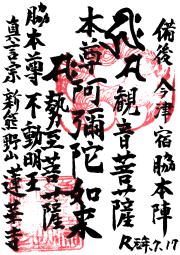 備後 今津宿 脇本陣
観音菩薩
本尊 阿彌陀如来
勢至菩薩
脇本尊 不動明王
真言宗 新熊野山 蓮華寺
R元年.7.17